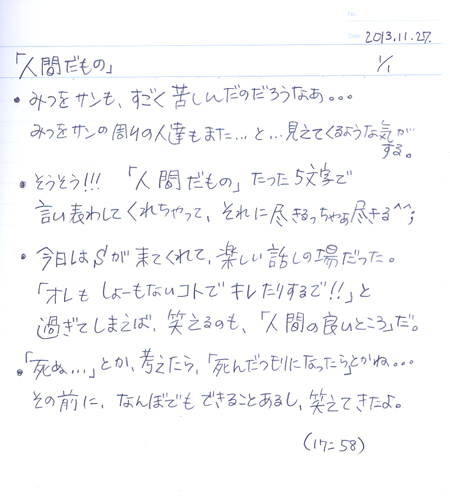 No.
Date 2013.11.27.
1/1
「人間だもの」
・みつをサンも、すごく苦しんだのだろうなあ。。。
みつをサンの周りの人達もまた…と…見えてくるような気がする。
・そうそう!!! 「人間だもの」たった5文字で
言い表わしてくれちゃって、それに尽きるっちゃぁ尽きる^^;
・今日はSが来てくれて、楽しい話しの場だった。
「オレもしょーもないコトでキレたりするで!!」と
過ぎてしまえば、笑えるのも、「人間の良いところ」だ。
・「死ぬ…」とか、考えたら、「死んだつもりになったら」とかね…
その前に、なんぼでもできることあるし、笑えてきたよ。
(17=58)